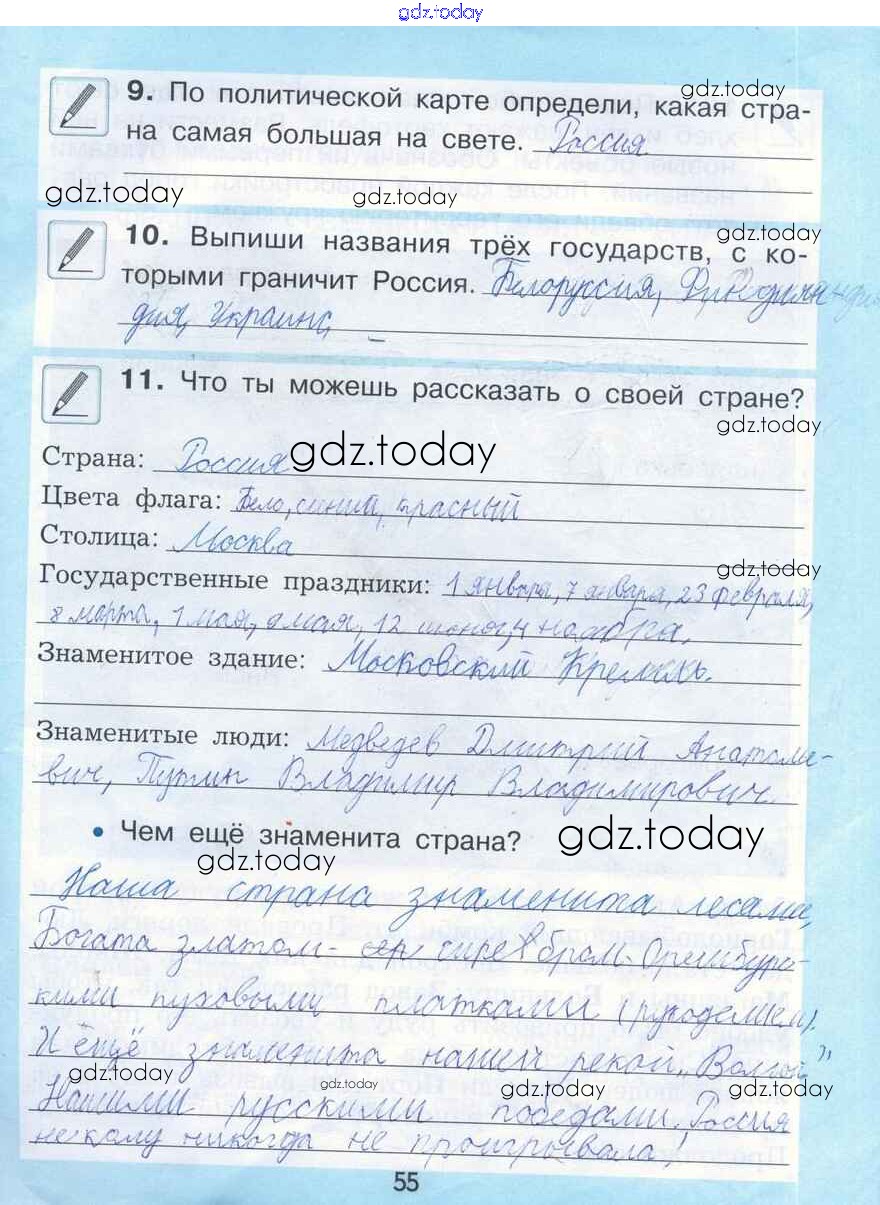 gdz.today
9. По политической карте определи, какая стра-
gdz.today
на самая большая на свете. Россия
gdz.today
gdz.today
10. Выпиши названия трёх государств, с ко-
gdz.today
торыми граничит Россия. Белоруссия,
дия, Украина,
11. Что ты можешь рассказать о своей стране?
gdz.today
Страна: Россия
gdz.today
Цвета флага: Бело, синий, красный
Столица: Москва
gdz.today
Государственные праздники: 1 января, 7 января, 23 февраля,
8 марта, 1 мая, 9 мая, 12 июня, 4 ноября.
Знаменитое здание: Московский Кремль.
Знаменитые люди: Медведев Дмитрий Анатоле-
вич, Путин Владимир Владимирович.
• Чем ещё знаменита страна?
gdz.today
gdz.today
Наша страна знаменита лесами,
Богата златом - Оренбургс-
кими пуховыми платками (рукоделием).
И ещё знаменита нашей рекой „Волгой”
gdz.today
gdz.today
gdz.today
gdz.today
Нашими русскими победами. Россия
некому никогда не проигрывала!
55